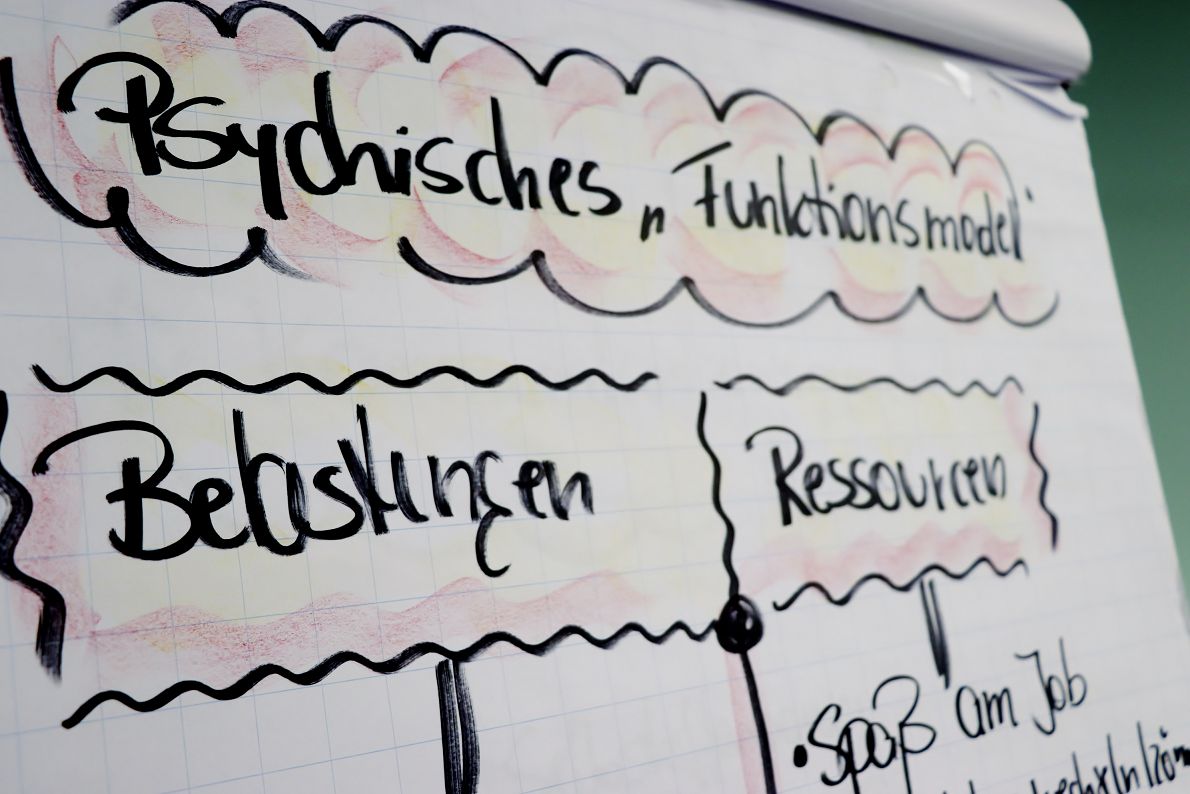 Psychisches „Funktionsmodel"
Belastungen
Ressourcen
• Spaß am Job